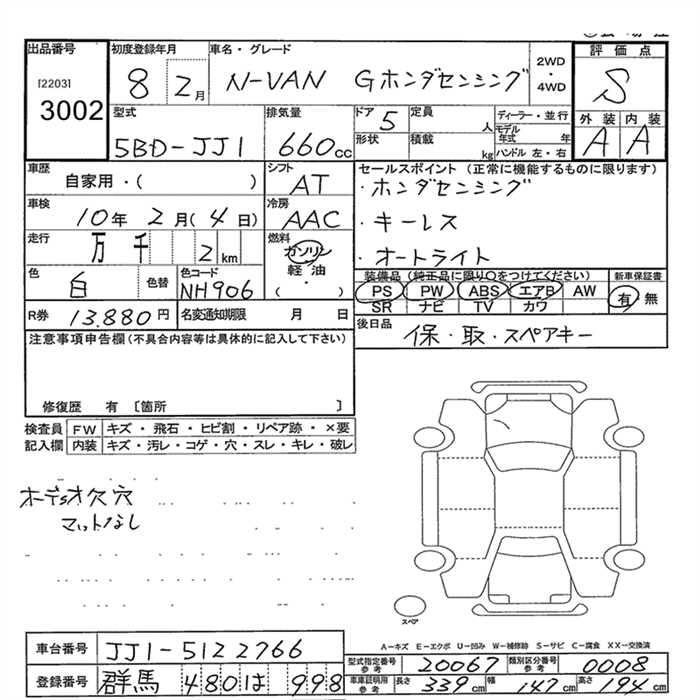 出品番号 初度登録年月 車名・グレード 2WD・4WD 評価点
[2203] 3002 8 2月 N-VAN Gホンダセンシング S
型式 排気量 ドア 定員 ディーラー・並行 外装 内装
5BD-JJ1 660cc 5 人 モデル年式 年 A A
形状 積載 kg ハンドル 左・右
車歴 シフト セールスポイント (正常に機能するものに限ります)
自家用・( ) AT ・ホンダセンシング
車検 冷房
10年 2月(4日) AAC ・キーレス
走行 燃料
万 千 2km ガソリン ・オートライト
色 色替 色コード 軽油 装備品(純正品に限り○をつけてください) 新車保証書
白 NH906 ・( ) PS PW ABS エアB AW 有・無
SR ナビ TV カワ
R券 13.880円 名変通知期限 月 日 後日品 保・取・スペアキー
注意事項申告欄(不具合内容等は具体的に記入して下さい)
修復歴 有 〔箇所 〕
検査員 FW キズ・飛石・ヒビ割・リペア跡・×要
記入欄 内装 キズ・汚レ・コゲ・穴・スレ・キレ・破レ
マットなし
スペア
A-キズ E-エクボ U-凹み W-補修跡 S-サビ C-腐食 XX-交換済
車台番号 JJ1-5122766
型式指定番号 参考 20067 類別区分番号 参考 0008
登録番号 群馬 480 は 998
車庫証明用 参考 長さ 339cm 幅 147cm 高さ 194cm